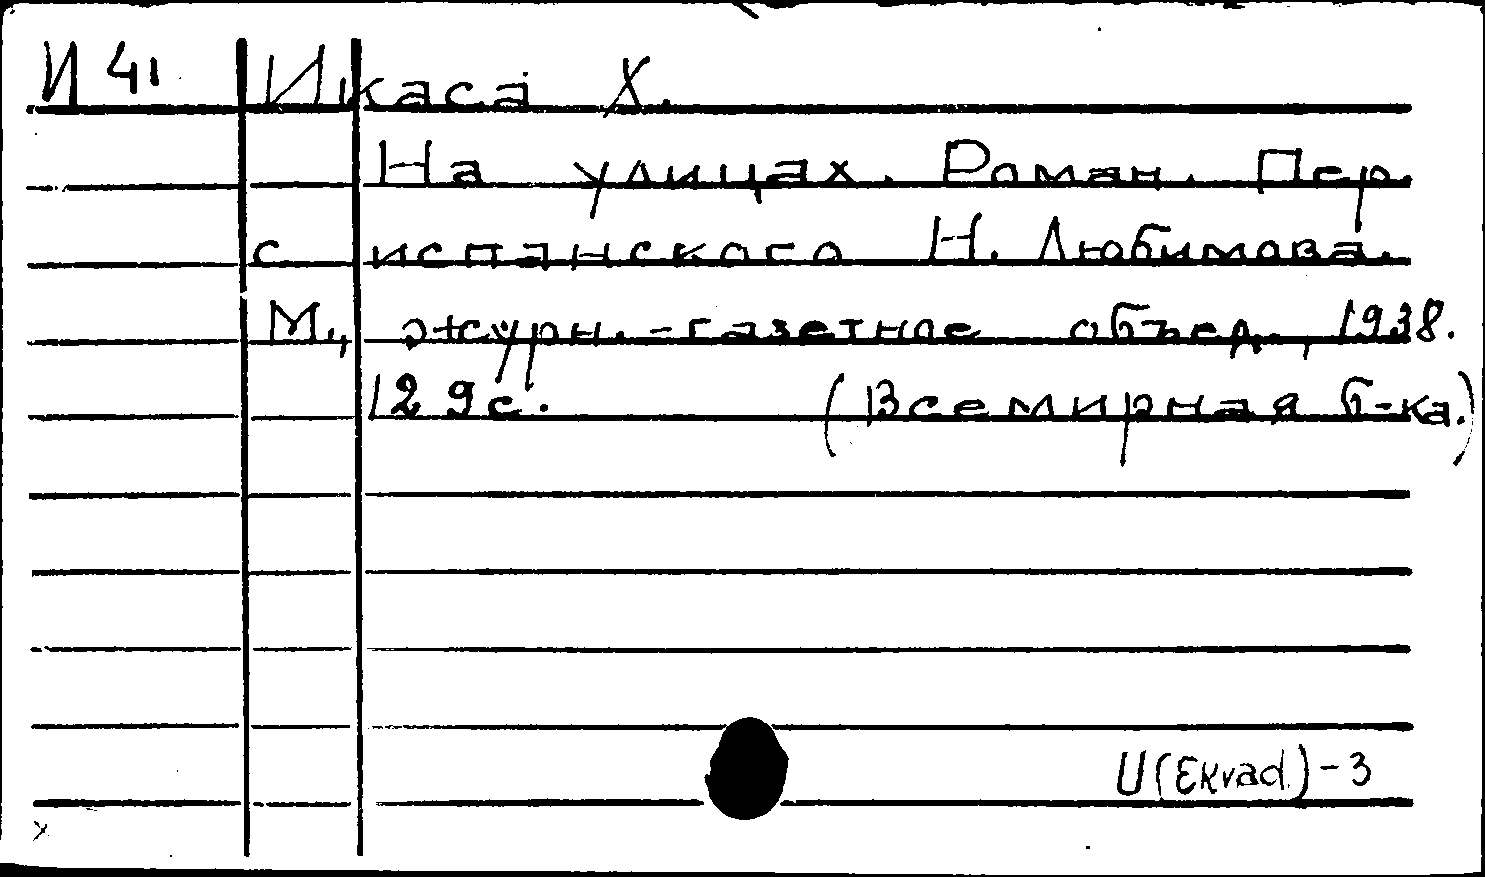 И 41 Икаса Х.
На улицах. Роман. Пер.
с испанского Н. Любимова.
М., журн.-газетное объед., 1938.
129 с. (Всемирная б-ка.)
U(Ekvad.)-3